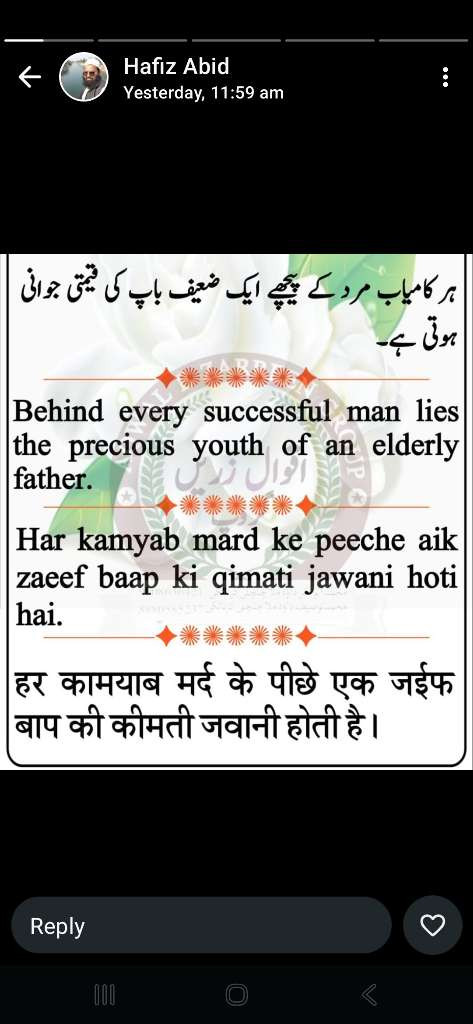 Hafiz Abid
Yesterday, 11:59 am
ہر کامیاب مرد کے پیچھے ایک ضعیف باپ کی قیمتی جوانی
ہوتی ہے۔
Behind every successful man lies
the precious youth of an elderly
father.
اقوال زریں
گروپ
Har kamyab mard ke peeche aik
zaeef baap ki qimati jawani hoti
hai.
हर कामयाब मर्द के पीछे एक जईफ
बाप की कीमती जवानी होती है।
Reply